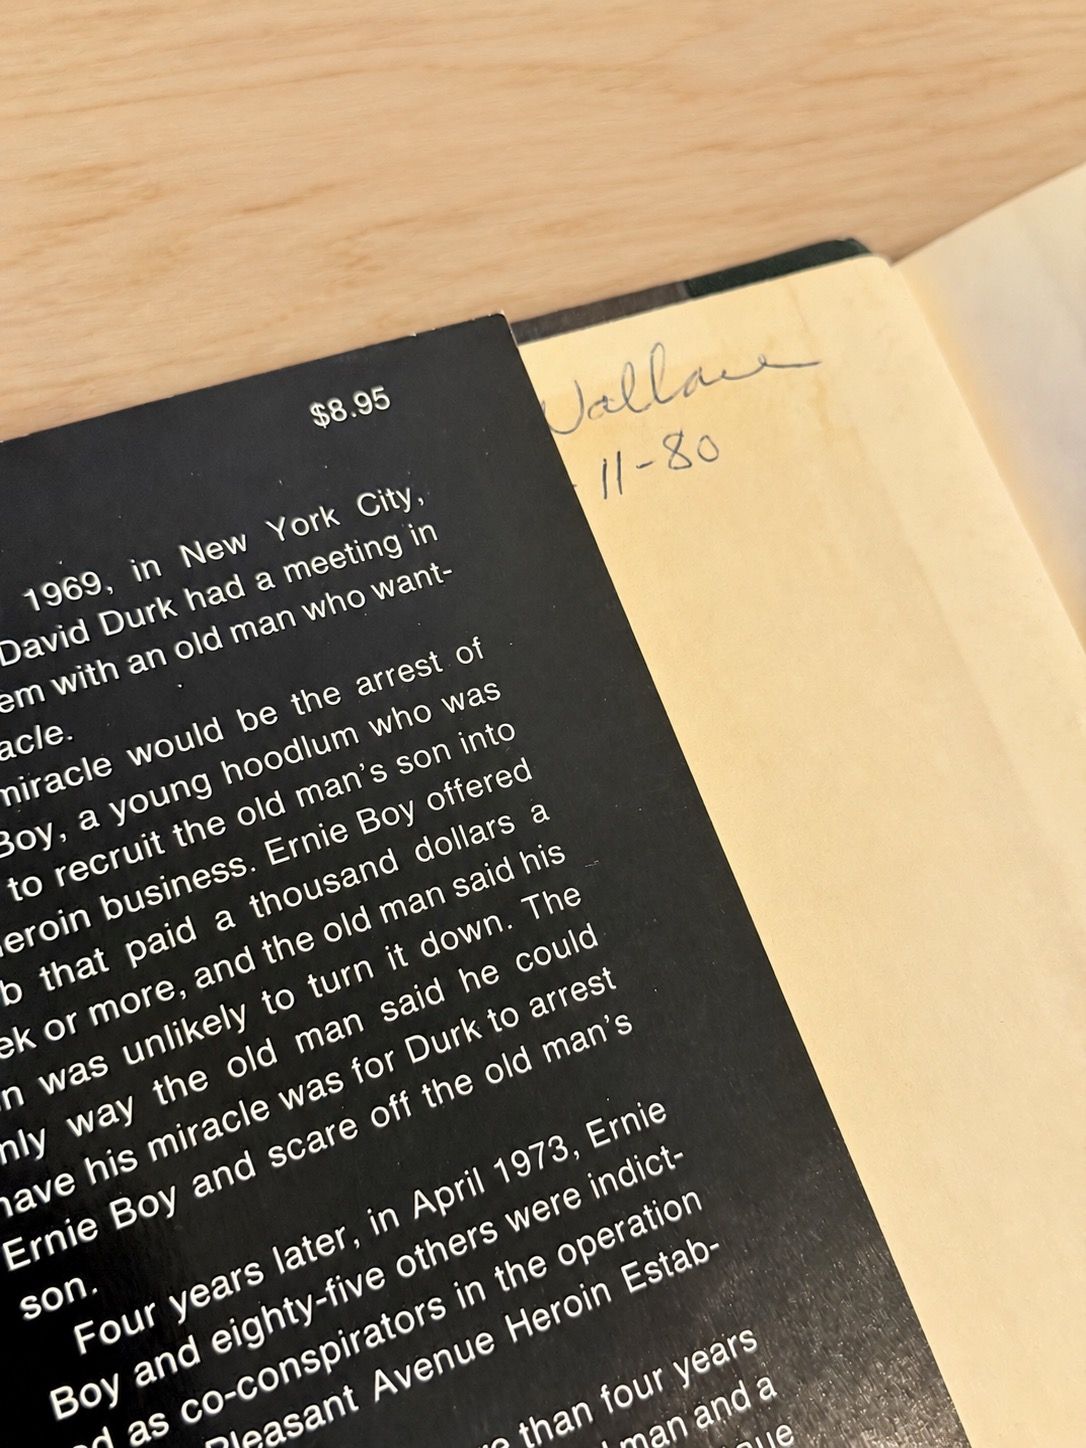 $8.95
1969, in New York City,
David Durk had a meeting in
em with an old man who want-
acle.
miracle would be the arrest of
Boy, a young hoodlum who was
to recruit the old man's son into
eroin business. Ernie Boy offered
b that paid a thousand dollars a
ek or more, and the old man said his
n was unlikely to turn it down. The
nly way the old man said he could
have his miracle was for Durk to arrest
Ernie Boy and scare off the old man's
son.
Four years later, in April 1973, Ernie
Boy and eighty-five others were indict-
ed as co-conspirators in the operation
Pleasant Avenue Heroin Estab-
re than four years
man and a
nue
Wallace
- 11-80